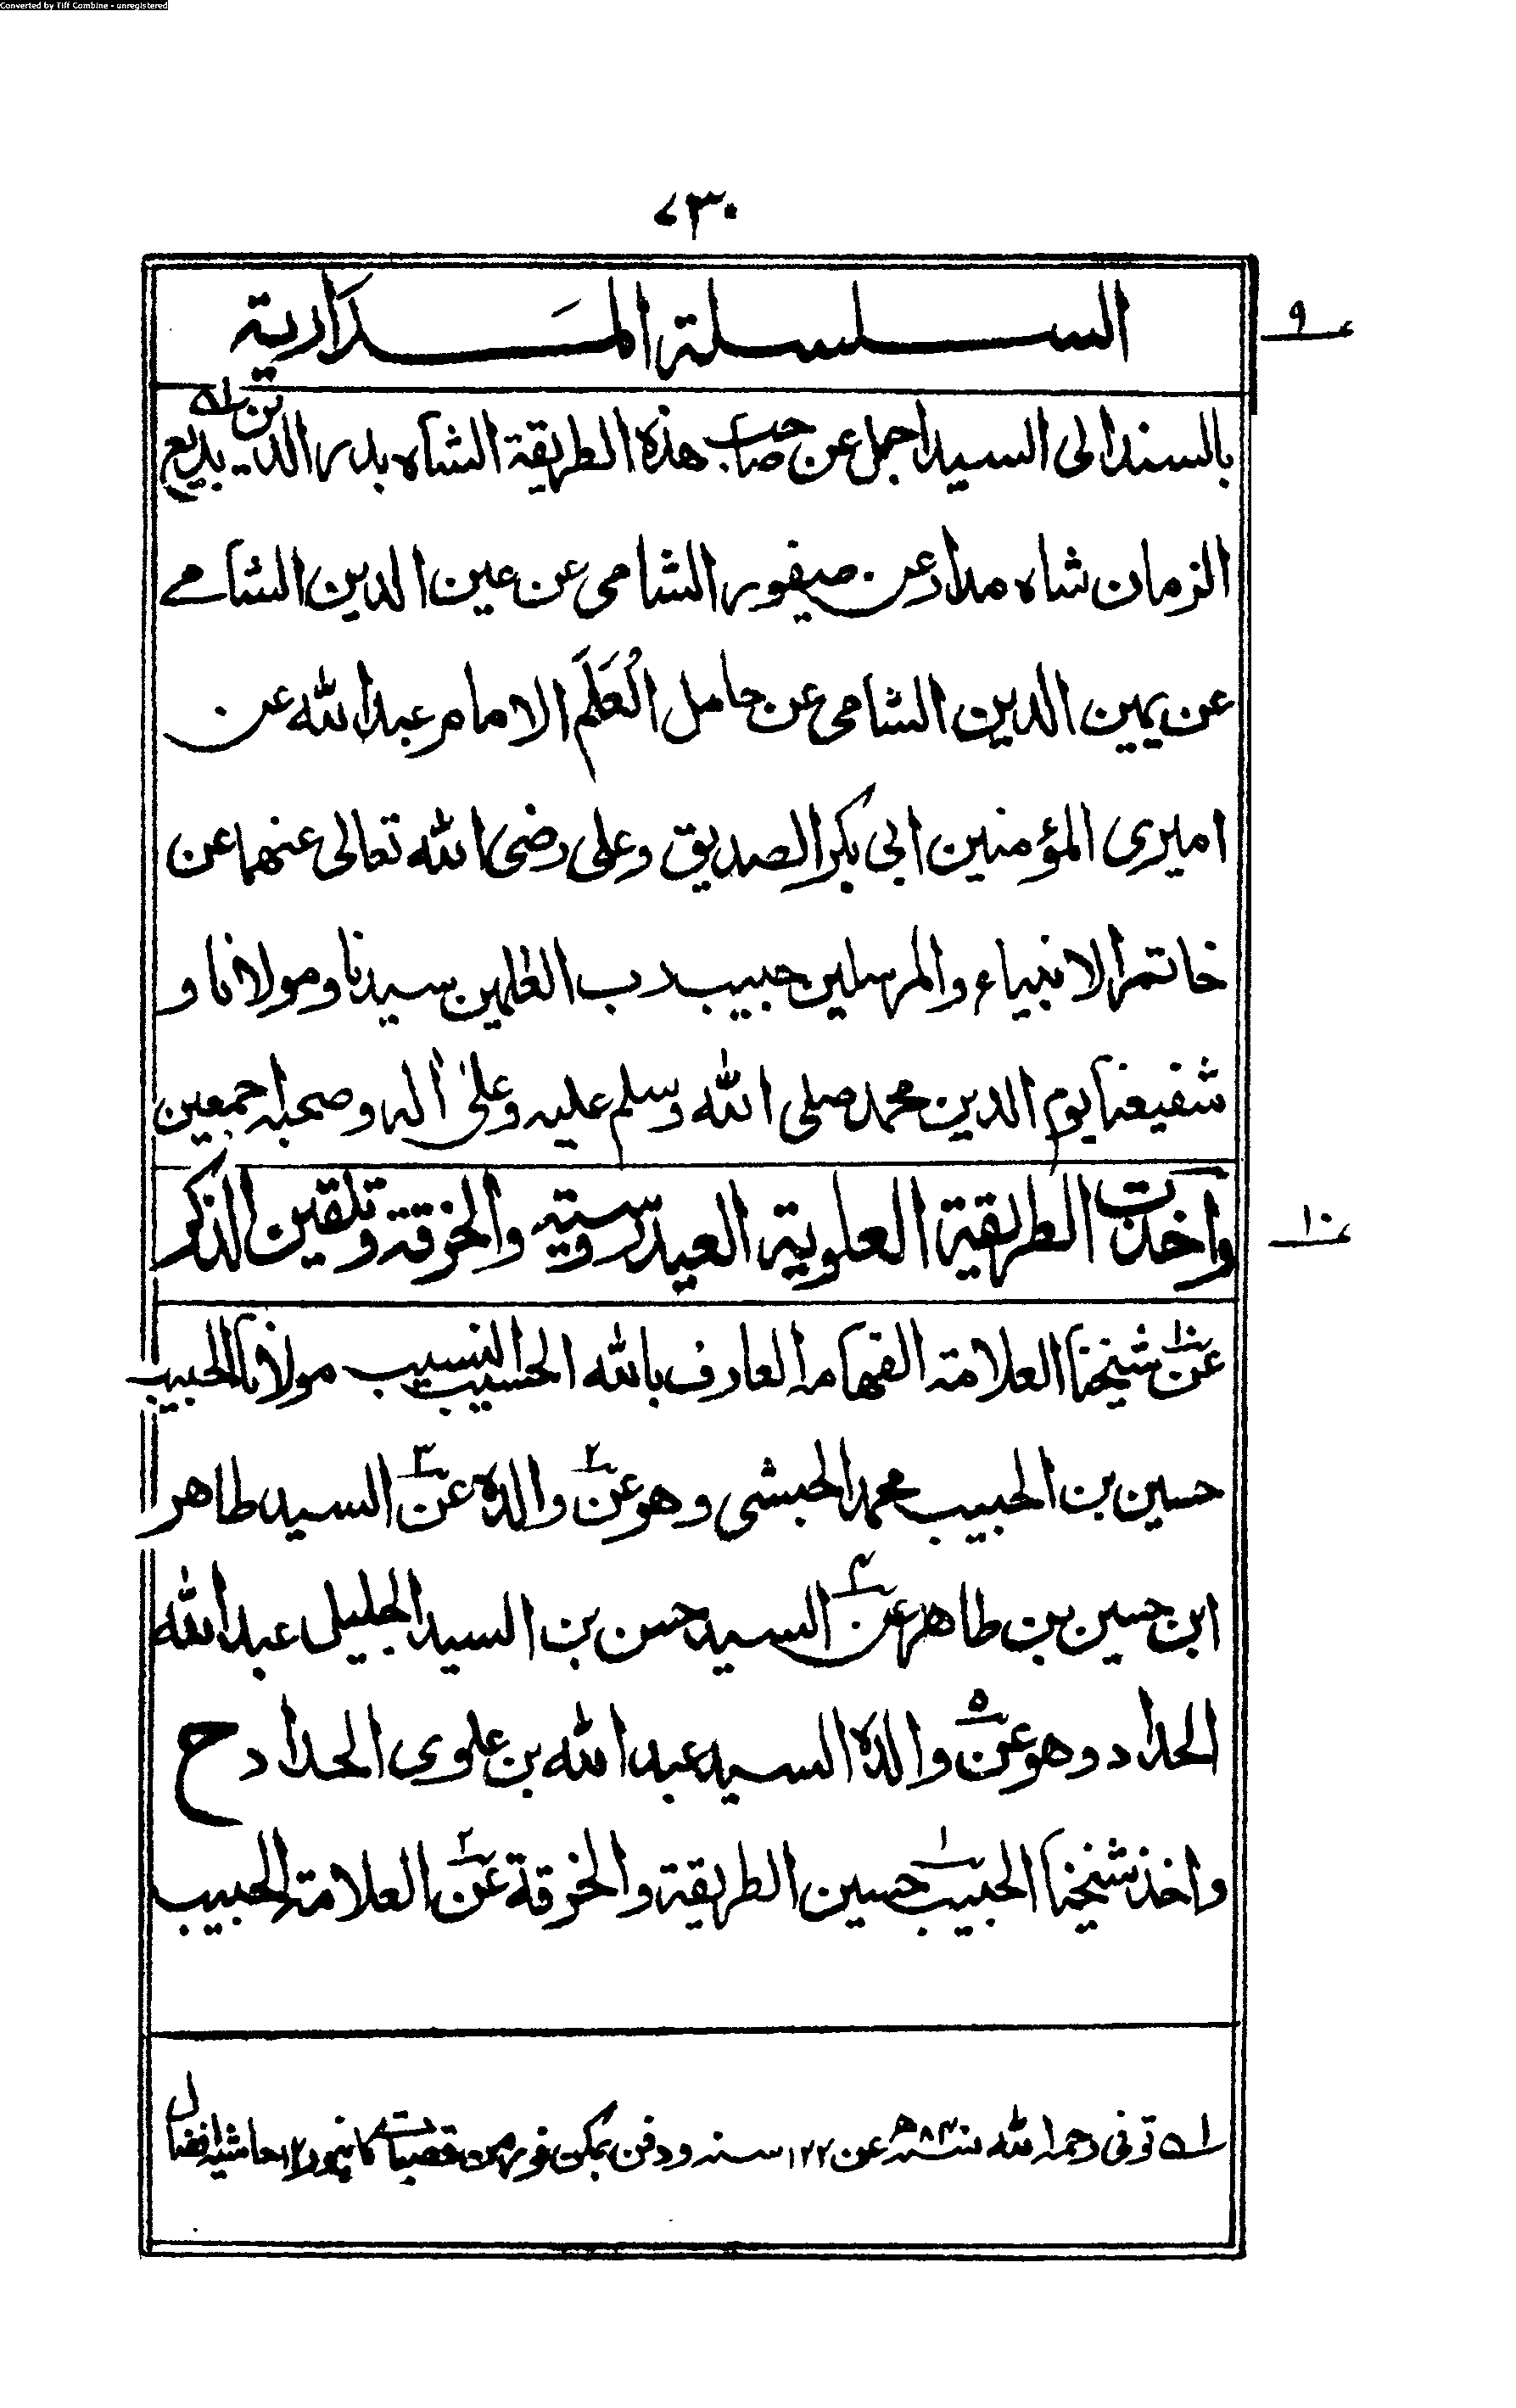 Converted by Tiff Combine - unregistered
٧٣٠
السلسلة المَدَارية
٩
بالسند الى السيد اجمل عن صاحب هذه الطريقة الشاه بدر الدين بديع
الزمان شاه مدار عن صيفور الشامى عن عين الدين الشامے
عن يمين الدين الشامى عن حامل العَلَم الامام عبد الله عن
اميرى المؤمنين ابى بكر الصديق وعلى رضى الله تعالى عنهما عن
خاتم الانبياء والمرسلين حبيب رب العٰلمين سيدنا ومولانا و
شفيعنا يوم الدين محمد صلى الله وسلم عليه وعلىٰ اله وصحبه اجمعين
واخذت الطريقة العلوية العيدروسية والخرقة وتلقين الذكر
١٠
عن شيخنا العلامة الفهامة العارف بالله الحسيب النسيب مولانا الحبيب
حسين بن الحبيب محمد الحبشى وهو عن٢ والده عن٣ السيد طاهر
ابن حسين بن طاهر عن٤ السيد حسن بن السيد الجليل عبد الله
الحداد وهو عن٥ والده السيد عبد الله بن علوى الحداد ح
واخذ شيخنا الحبيب١ حسين الطريقة والخرقة عن٢ العلامة الحبيب
ا؎ توفى رحمه الله سنه ٨٤٠ھ عن ١٢٢ سنه ودفن بمكن فور من قصبات كانپور ١٢ حاشيه افضال